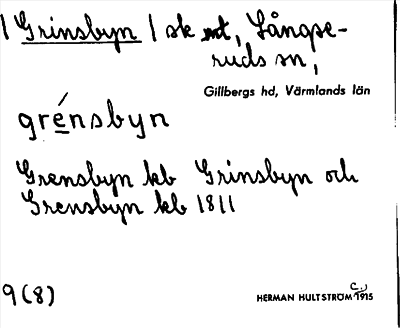 / Grinsbyn / sk mt, Långse-
ruds sn,
Gillbergs hd, Värmlands län
grénsbyn
Grensbyn kb Grinsbyn och
Grensbyn kb 1811
9(8) HERMAN HULTSTRÖM C.) 1915